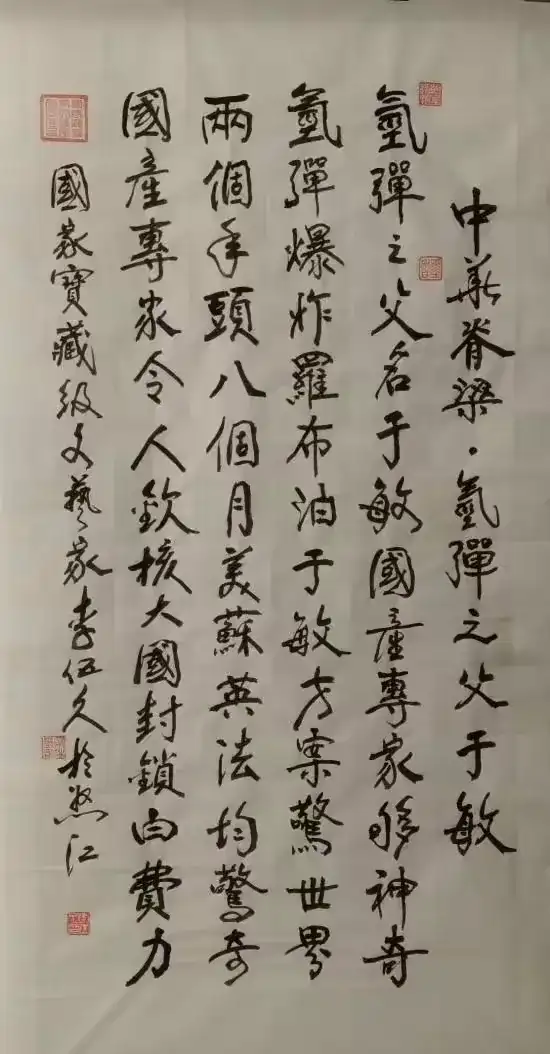 中華脊梁·氫彈之父于敏
氫彈之父名于敏國產專家够神奇
氫彈爆炸羅布泊于敏方案驚世界
兩個年頭八個月美蘇英法均驚奇
國產專家令人欽核大國封鎖白費力
國家寶藏級文藝家李伍久於怒江